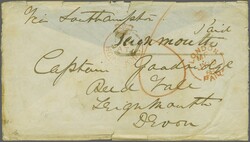 Via Southampton
Paid
Teignmouth
Captain Goodridge
Reed Vale
Teignmouth
Devon